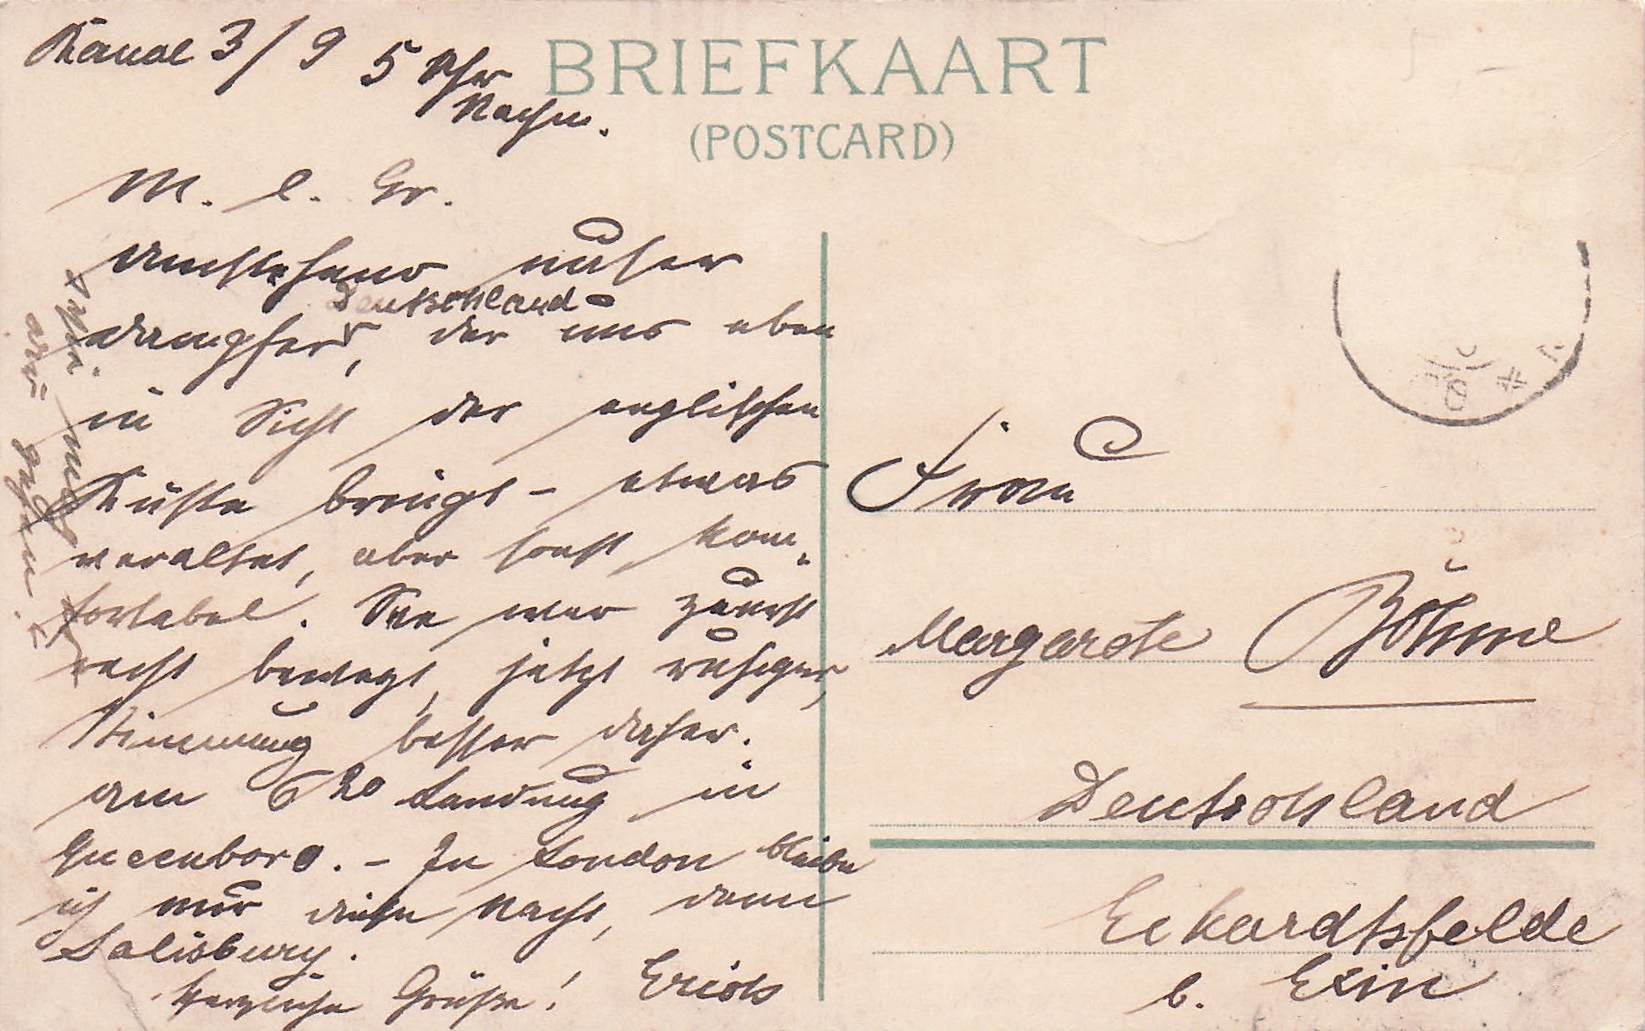 Kanal 3/9 5 Uhr
Nachm.
BRIEFKAART
(POSTCARD)
M. l. Gr.
Umstehend unser
Deutschland
Dampfer, der uns eben
in Sicht der englischen
Küste bringt – etwas
veraltet, aber sonst kom-
fortabel. See war zuerst
recht bewegt, jetzt ruhiger,
Stimmung besser daher.
Um 6 20 Landung in
Queenboro. – In London bleibe
ich nur diese Nacht, dann
Salisbury.
Herzliche Grüße! Erich
Frau
Margarete Böhme
Deutschland
Eckardtsfelde
b. Exin